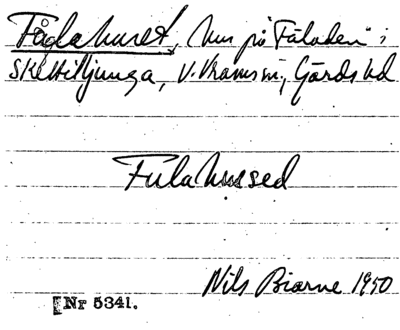 Fåglahuset, hus på "Fäladen" i
Skättilljunga, V. Vram sn, Gärds hd
Fula hussed
Nils Bjarne 1950
Nr 5341.